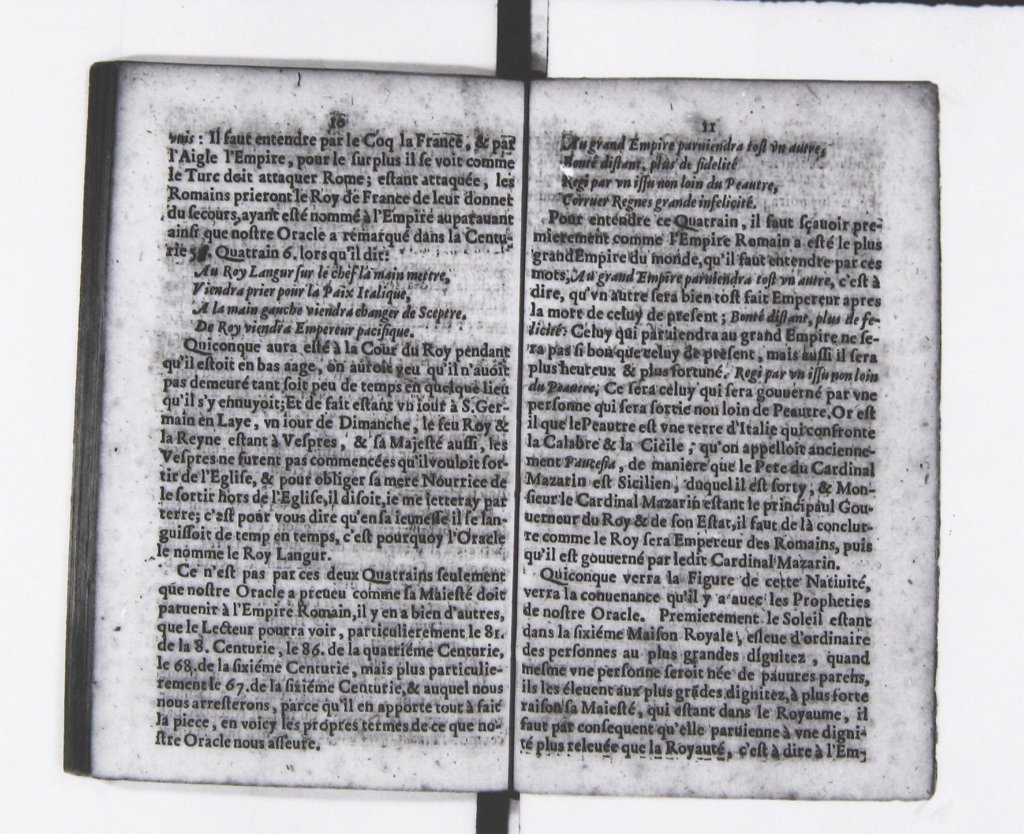 10
vnis : Il faut entendre par le Coq la France, & par
l'Aigle l'Empire, pour le surplus il se voit comme
le Turc doit attaquer Rome; estant attaquée, les
Romains prieront le Roy de France de leur donner
du secours, ayant esté nommé à l'Empire auparauant
ainsi que nostre Oracle a remarqué dans la Centu-
rie Quatrain 6. lors qu'il dit:
Au Roy Langur sur le chef la main mettre,
Viendra prier pour la Paix Italique,
A la main gauche viendra changer de Sceptre,
De Roy viendra Empereur pacifique.
Quiconque aura esté à la Cour du Roy pendant
qu'il estoit en bas aage, on auroit veu qu'il n'auoit
pas demeuré tant soit peu de temps en quelque lieu
qu'il s'y ennuyoit; Et de fait estant vn iour à S. Ger-
main en Laye, vn iour de Dimanche, le feu Roy &
la Reyne estant à Vespres, & sa Majesté aussi, les
Vespres ne furent pas commencées qu'il vouloit sor-
tir de l'Eglise, & pour obliger sa mere Nourrice de
le sortir hors de l'Eglise, il disoit, ie me ietteray par
terre; c'est pour vous dire qu'en sa ieunesse il se lan-
guissoit de temp en temps, c'est pourquoy l'Oracle
le nomme le Roy Langur.
Ce n'est pas par ces deux Quatrains seulement
que nostre Oracle a preueu comme sa Maiesté doit
paruenir à l'Empire Romain, il y en a bien d'autres,
que le Lecteur pourra voir, particulierement le 81.
de la 8. Centurie, le 86. de la quatriéme Centurie,
le 68. de la sixiéme Centurie, mais plus particulie-
rement le 67. de la sixiéme Centurie, & auquel nous
nous arresterons, parce qu'il en apporte tout à fait
la piece, en voicy les propres termes de ce que no-
stre Oracle nous asseure.
11
Au grand Empire paruiendra tost vn autre,
Bonté distant, plus de fidelité
Regi par vn issu non loin du Peautre,
Corruer Regnes grande infelicité.
Pour entendre ce Quatrain, il faut sçauoir pre-
mierement comme l'Empire Romain a esté le plus
grand Empire du monde, qu'il faut entendre par ces
mots, Au grand Empire paruiendra tost vn autre, c'est à
dire, qu'vn autre sera bien tost fait Empereur apres
la mort de celuy de present ; Bonté distant, plus de fe-
licité: Celuy qui paruiendra au grand Empire ne se-
ra pas si bon que celuy de present, mais aussi il sera
plus heureux & plus fortuné. Regi par vn issu non loin
du Peautre, Ce sera celuy qui sera gouuerné par vne
personne qui sera sortie non loin de Peautre. Or est
il que le Peautre est vne terre d'Italie qui confronte
la Calabre & la Cicile, qu'on appelloit ancienne-
ment de maniere que le Pere du Cardinal
Mazarin est Sicilien, duquel il est sorty, & Mon-
sieur le Cardinal Mazarin estant le principaul Gou-
uerneur du Roy & de son Estat, il faut de là conclur-
re comme le Roy sera Empereur des Romains, puis
qu'il est gouuerné par ledit Cardinal Mazarin.
Quiconque verra la Figure de cette Natiuité,
verra la conuenance qu'il y a auec les Propheties
de nostre Oracle. Premierement le Soleil estant
dans la sixiéme Maison Royale, esleue d'ordinaire
des personnes au plus grandes dignitez, quand
mesme vne personne seroit née de pauures parens,
ils les éleuent aux plus grãdes dignitez, à plus forte
raison sa Maiesté, qui estant dans le Royaume, il
faut par consequent qu'elle paruienne à vne digni-
té plus releuée que la Royauté, c'est à dire à l'Em-